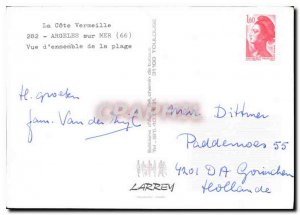 La Côte Vermeille
282 - ARGELES sur MER (66)
Vue d'ensemble de la plage
1,60
H. groeten
fam. Van der
Fam. Dittmer
Paddemoes 55
4201 DA Gorinchem
Hollande
LARREY